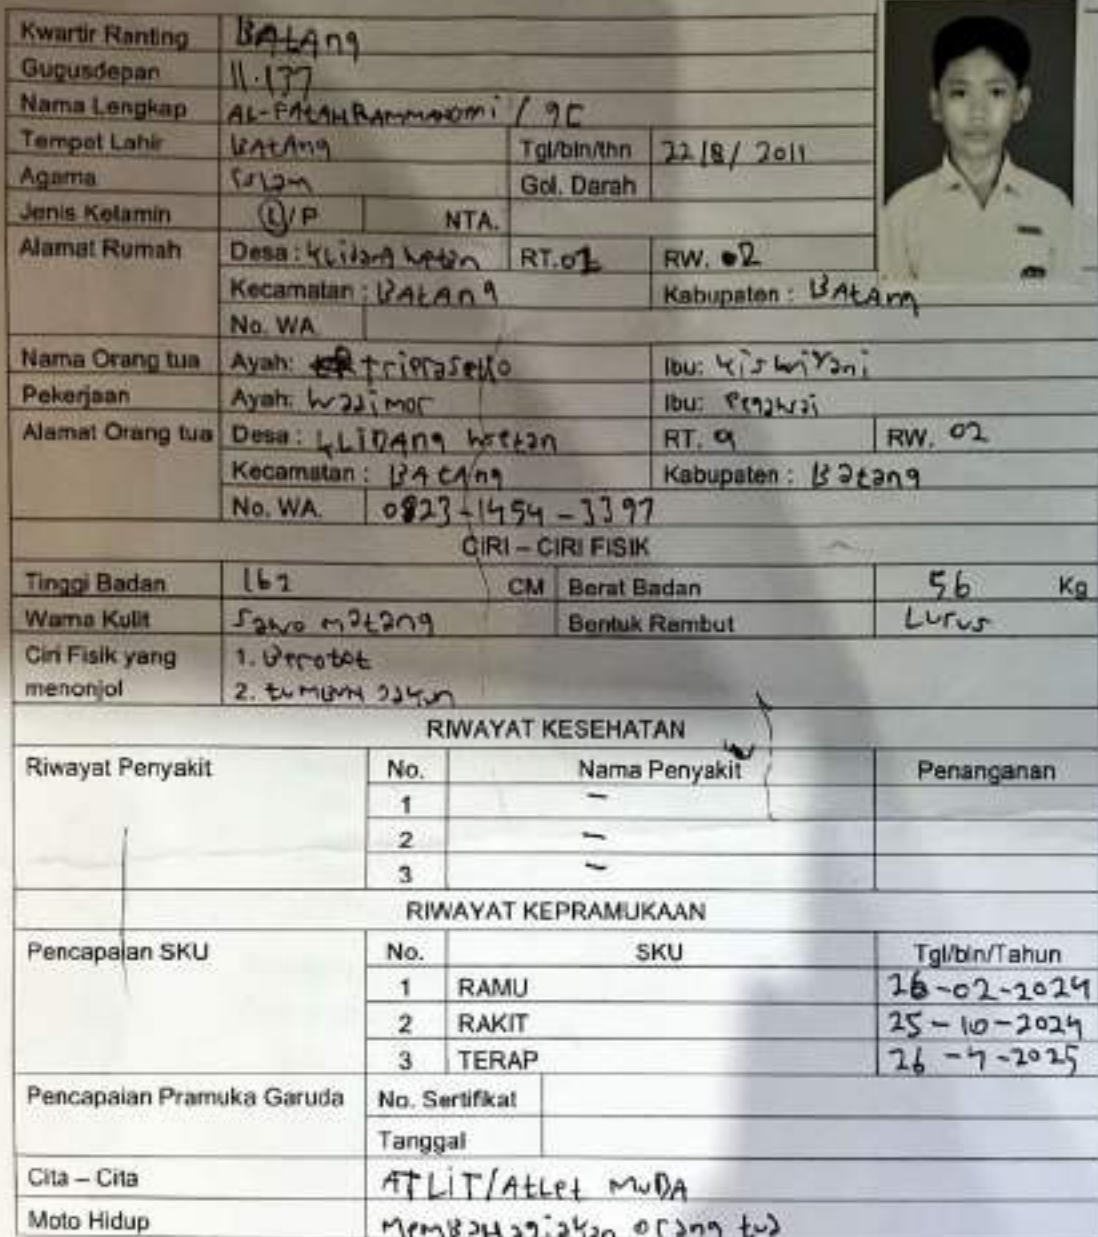 Kwartir Ranting BATAng
Gugusdepan 11.137
Nama Lengkap / 9C
Tempat Lahir BATAng Tgl/bln/thn 22/8/2011
Agama Islam Gol. Darah
Jenis Kelamin L/P NTA.
Alamat Rumah Desa : kLidang wetan RT.01 RW. 02
Kecamatan : BAtAng Kabupaten : BAtAng
No. WA
Nama Orang tua Ayah: triprasetyo Ibu: kiswiyani
Pekerjaan Ayah: Ibu: Pegawai
Alamat Orang tua Desa : kLiDAng wetan RT. RW. 02
Kecamatan : BAtAng Kabupaten : Batang
No. WA. 0823-1454-3397
CIRI – CIRI FISIK
Tinggi Badan 162 CM Berat Badan 56 Kg
Warna Kulit Sawo matang Bentuk Rambut Lurus
Ciri Fisik yang 1. Berotot
menonjol 2.
RIWAYAT KESEHATAN
Riwayat Penyakit No. Nama Penyakit Penanganan
1 –
2 –
3 –
RIWAYAT KEPRAMUKAAN
Pencapaian SKU No. SKU Tgl/bln/Tahun
1 RAMU 26-02-2024
2 RAKIT 25-10-2024
3 TERAP
Pencapaian Pramuka Garuda No. Sertifikat
Tanggal
Cita – Cita ATLiT/AtLet MuDA
Moto Hidup MemBaHagiakan orang tua